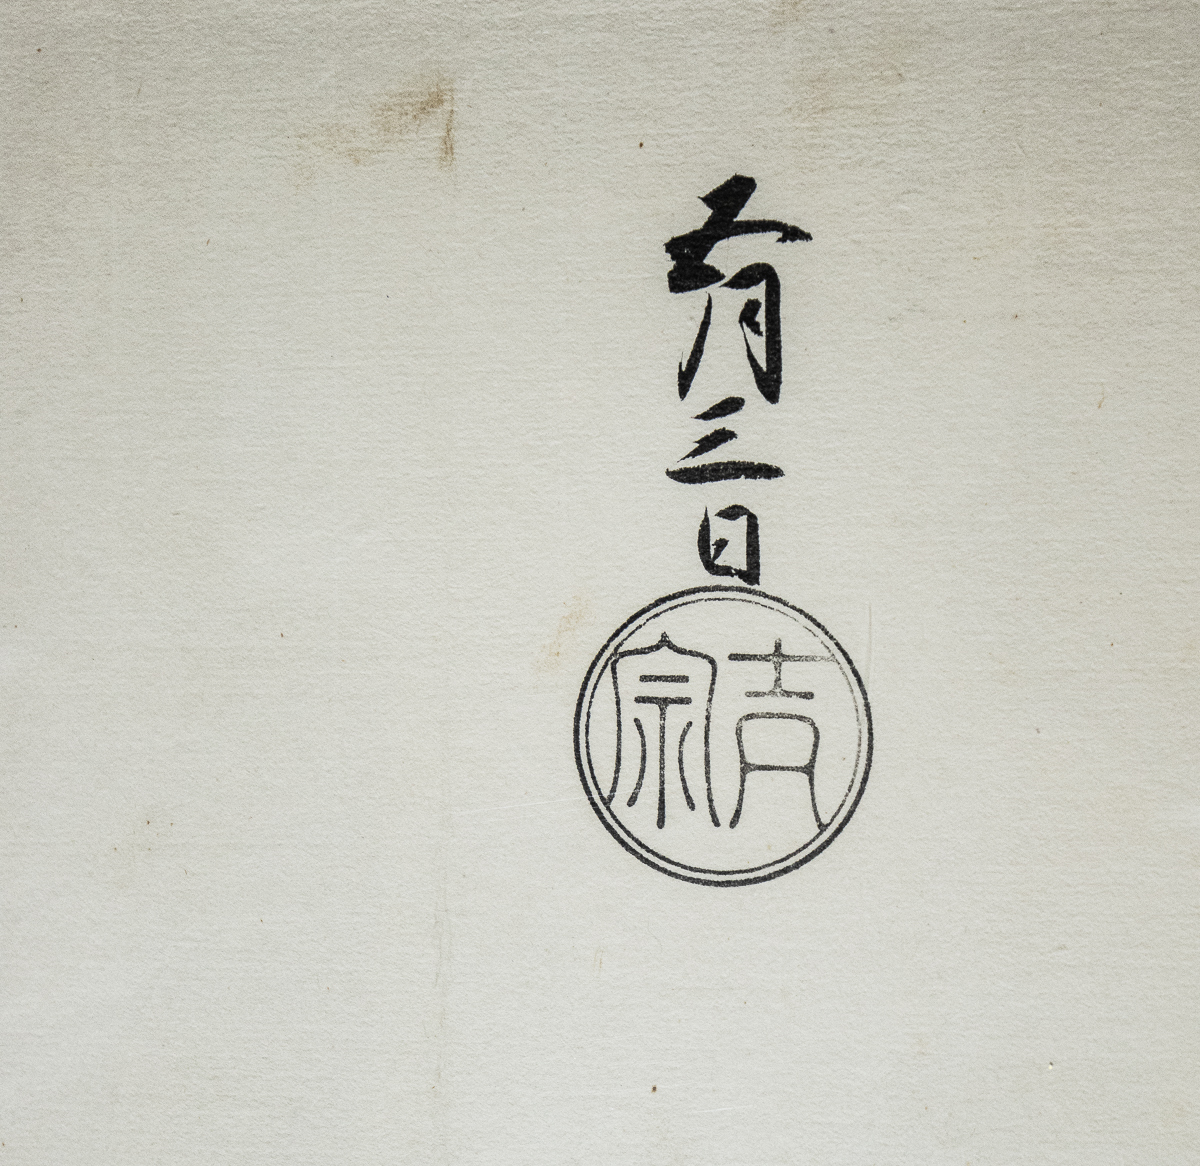 五月三日
吉宗